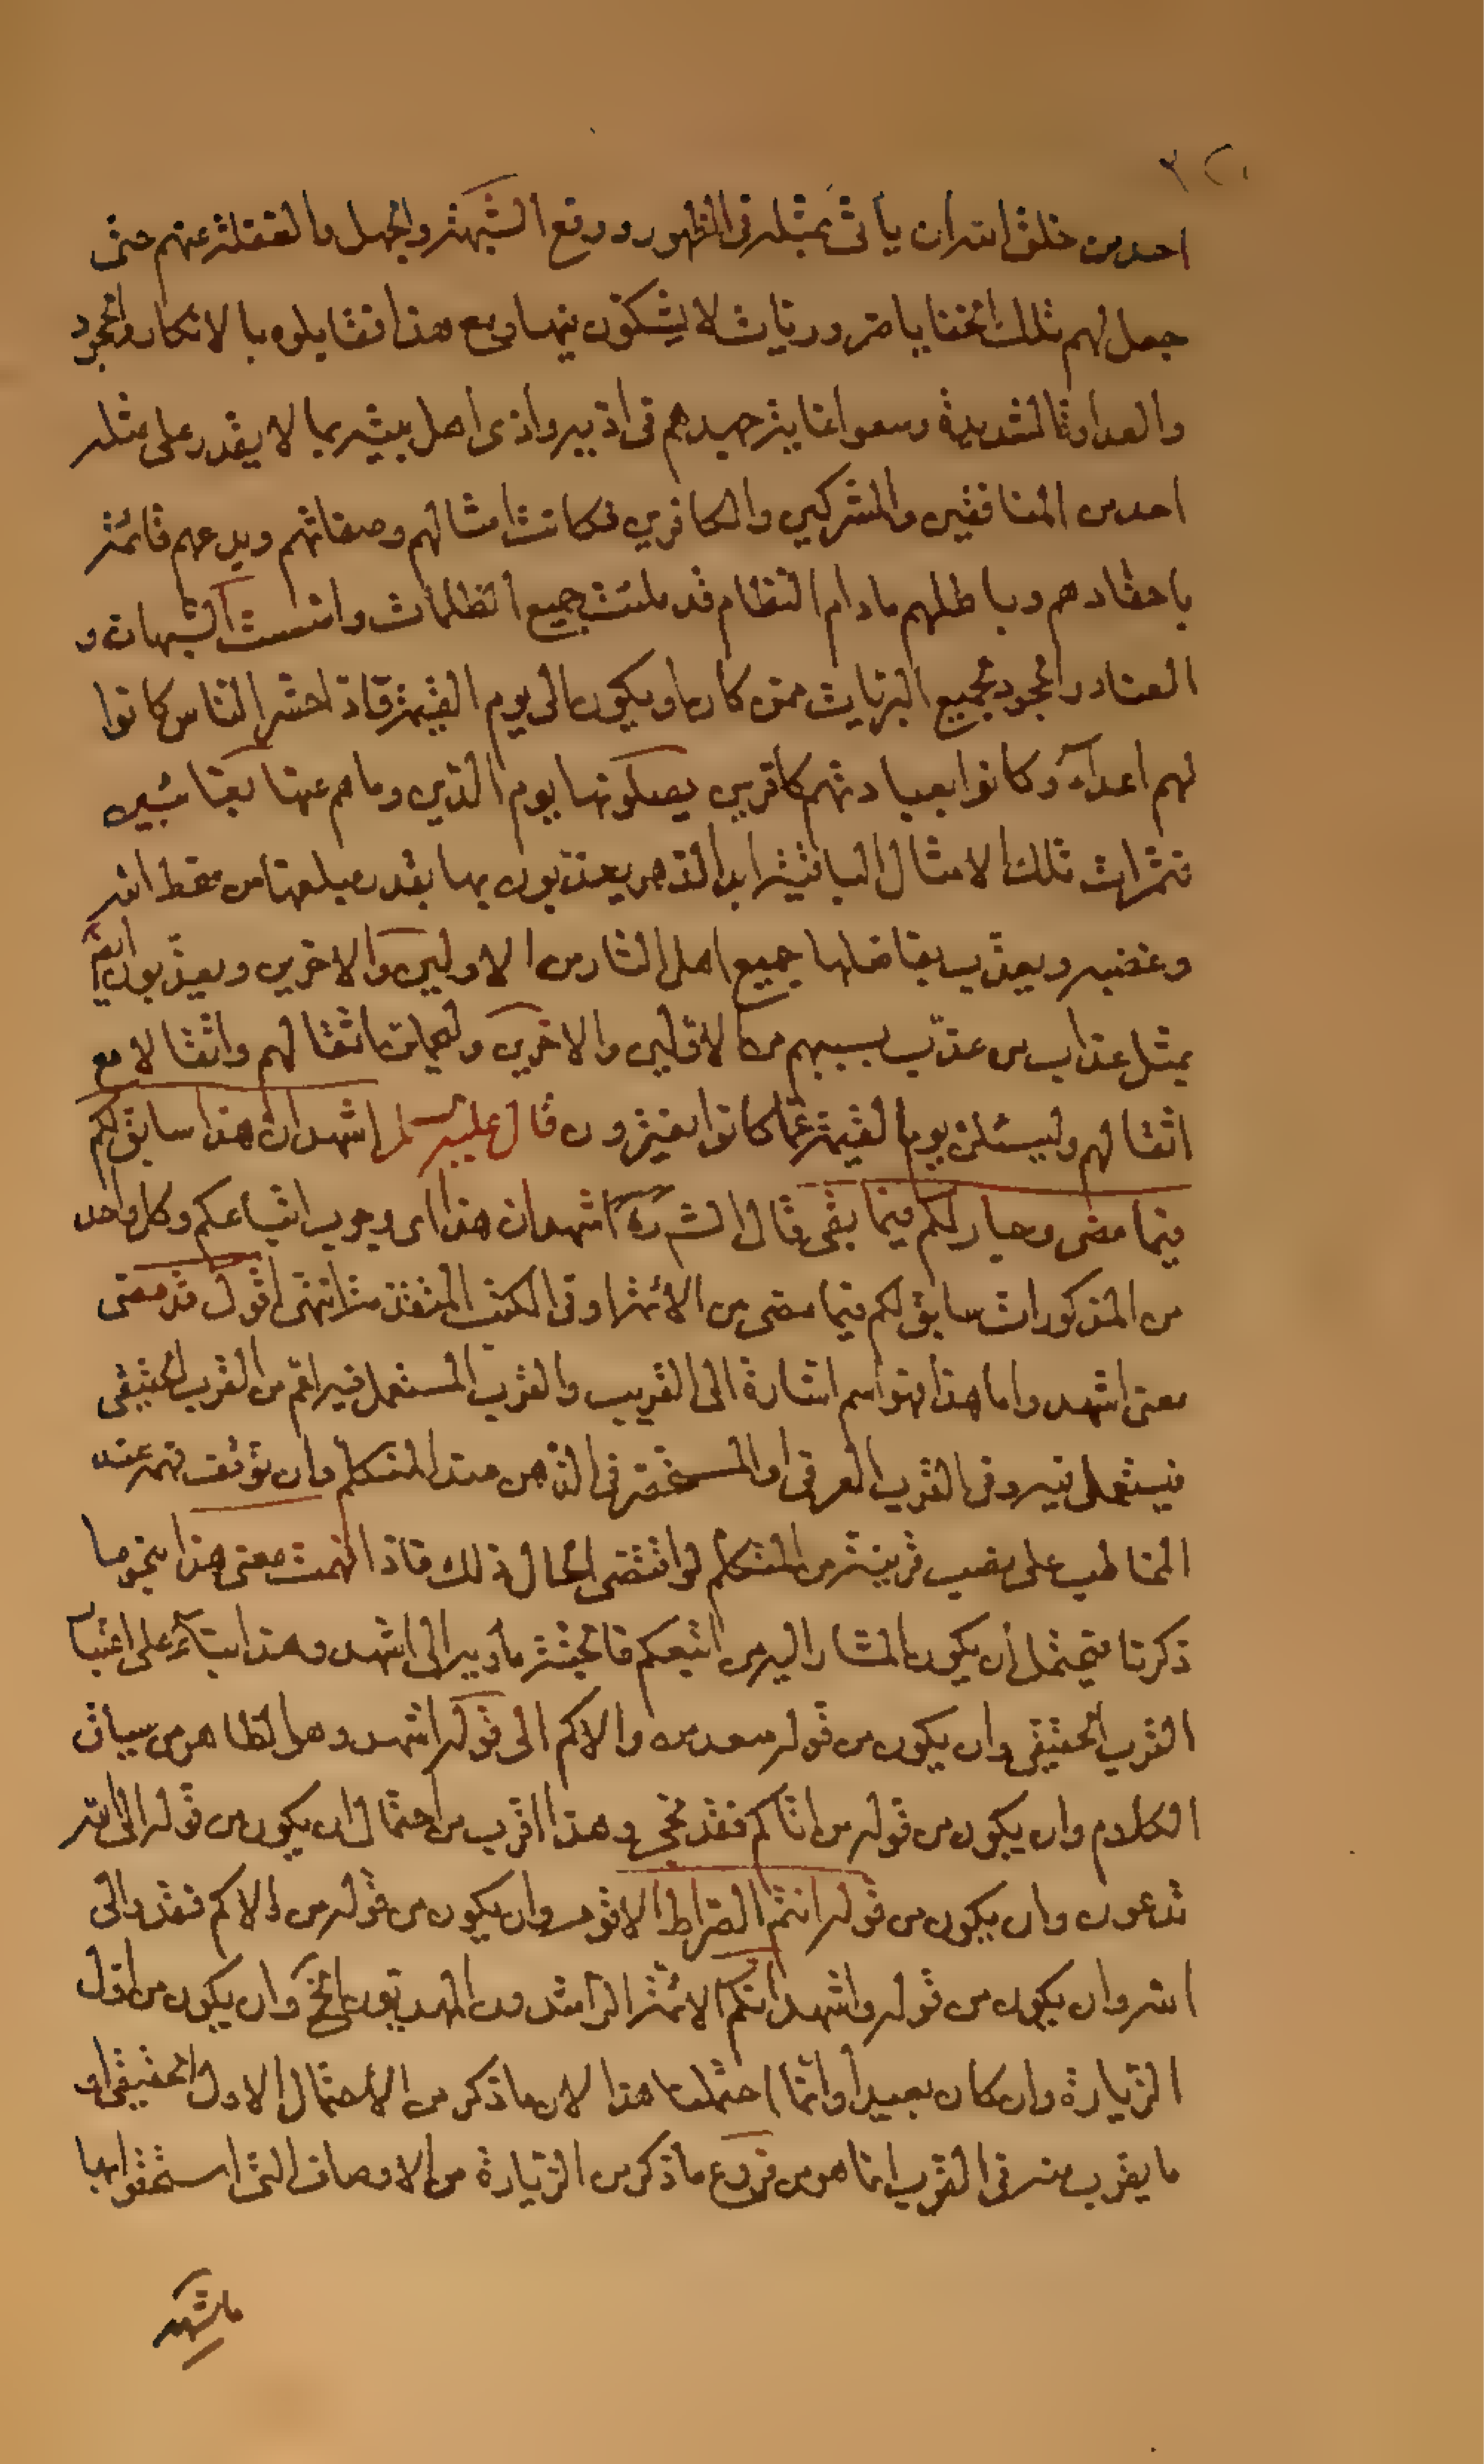 ٣٢٠
احد من خلق الله ان يأتى بمثله فى الظهور ورفع الشبهة والجهل والغفلة عنهم حتى
جعل لهم تلك الخفايا ضروريات لا يشكون فيها ومع هذا فقابلوه بالانكار والجحود
والعداوة الشديدة وسعوا غاية جهدهم فى اذيته واذى اهل بيته بما لا يقدر على مثله
احد من المنافقين والمشركين والكافرين فكانت امثالهم وصفاتهم وبدعهم قائمة
باحقادهم وباطلهم مادام النظام قد ملئت جميع الظلمات واسست الشبهات و
العناد والجحود بجميع البريات ممن كان او يكون الى يوم القيمة فاذا حشر الناس كانوا
لهم اعداء وكانوا بعبادتهم كافرين يصلونها يوم الدين وما هم عنها بغائبين
فثمرات تلك الامثال الباقية ابد الدهر يعذبون بها بقدر مبلغها من مقت الله
وغضبه ويعذب بفاضلها جميع اهل النار من الاولين والاخرين ويعذبون ايضا
بمثل عذاب من عذب بسببهم من الاولين والاخرين وليحملن اثقالهم واثقالا مع
اثقالهم وليسئلن يوم القيمة عما كانوا يفترون قال عليه السلم اشهد ان هذا سابق لكم
فيما مضى وجار لكم فيما بقى قال الشره اشهد ان هذا اى وجوب اتباعكم وكل واحد
من المذكورات سابق لكم فيما مضى من الائمة او فى الكتب المتقدمة انتهى اقول قد مضى
معنى اشهد واما هذا فهو اسم اشارة الى القريب والقرب المستعمل فيه اعم من القرب الحقيقى
فيستعمل فيه وفى القرب العرفى او المستحضر فى الذهن عند المتكلم وان توقف فهمه عند
المخاطب على نصب قرينة من المتكلم لو اقتضى الحال ذلك فاذا فهمت معنى هذا بنحو ما
ذكرنا فيحتمل ان يكون المشار اليه من اتبعكم فالجنة مأويه الى اشهد وهذا بناء على اعتبار
القرب الحقيقى وان يكون من قوله سعد من والاكم الى قوله اشهد وهو الظاهر من سياق
الكلام وان يكون من قوله من اتاكم فقد نجى وهذا اقرب من احتمال ان يكون من قوله الى الله
تدعون وان يكون من قوله انتم الصراط الاقوم وان يكون من قوله من والاكم فقد والى
الله وان يكون من قوله واشهد انكم الائمة الراشدون المهديون الخ وان يكون من اول
الزيارة وان كان بعيدا وانما احتملنا هذا لان ما ذكر من الاحتمال الاول الحقيقى او
ما يقرب منه فى القرب انما هو من فروع ما ذكر من الزيارة من الاوصاف التى استحقوا بها
ما شهد